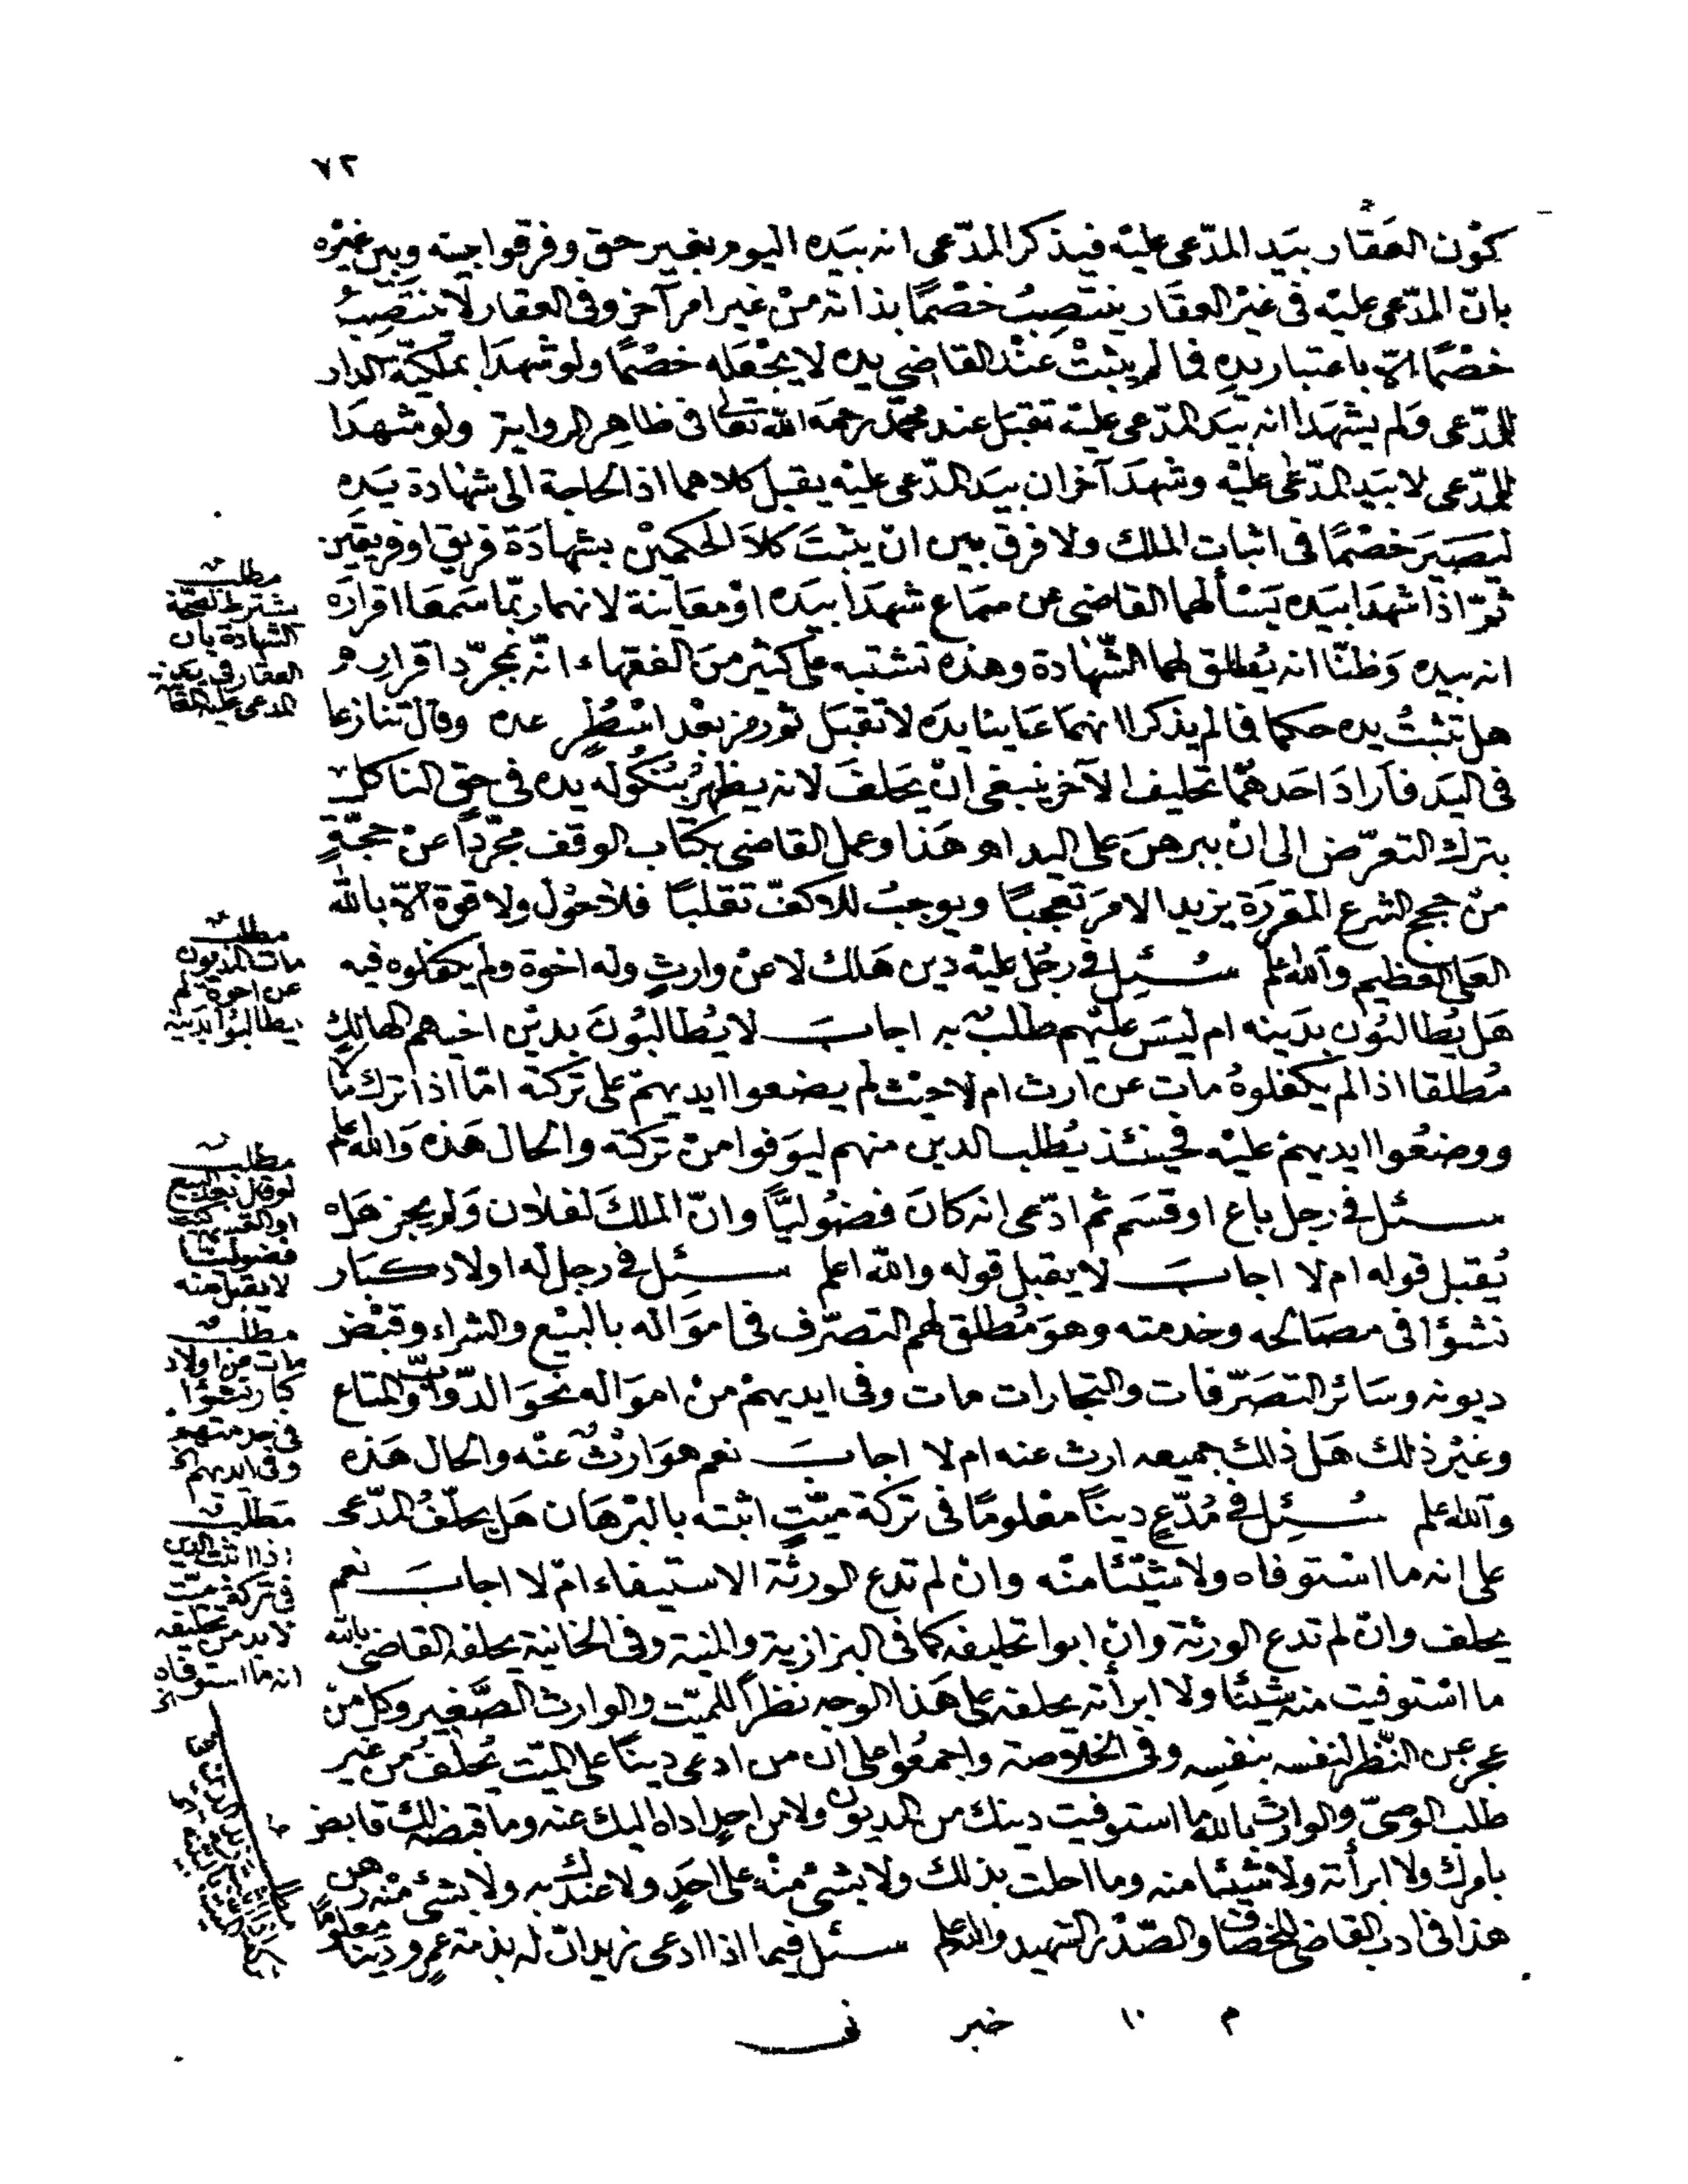 ٧٢
كون العقار بيد المدّعى عليه فيذكر المدّعى انه بيده اليوم بغير حق وفرقوا بينه وبين غيره
بانّ المدّعى عليه فى غير العقار ينتصب خصمًا بذاته من غير امر آخر وفى العقار لا ينتصبُ
خصمًا الاّ باعتبار يدهِ فما لم يثبت عند القاضى يده لا يجعله خصمًا ولو شهدا بملكيّة الدار
للمدّعى ولم يشهدا انه بيد المدّعى عليه تقبل عند محمّد رحمه الله تعالى فى ظاهر الرواية ولو شهدا
للمدّعى لا بيد المدّعى عليه وشهد آخران بيد المدّعى عليه يقبل كلاهما اذ الحاجة الى شهادة يده
ليصير خصمًا فى اثبات الملك ولا فرق بين ان يثبت كلا الحكمين بشهادة فريق او فريقين
ثمّ اذا شهدا بيده يسألهما القاضى عن سماع شهدا بيده او معاينة لانهما ربّما سمعا اقراره
انه بيده وظنّا انه يُطلق لهما الشّهادة وهذه تشتبه على كثير من الفقهاء انّه بمجرّد اقراره
هل تثبتُ يده حكما فما لم يذكرا انهما عاينا يده لا تقبل ثم رمز بعد اسطر عده وقال تنازعا
فى اليد فاراد احدهما تحليف الآخر ينبغى ان يحلف لانه يظهر بنكوله يده فى حق الناكل
بترك التعرّض الى ان يبرهن على اليد اهـ هذا وعمل القاضى بكتاب الوقف مجرّدًا عن حجّةٍ
من حجج الشرع المقررة يزيد الامر تعجبًا ويوجب للاكفّ تقلبًا فلا حول ولا قوة الاّ بالله
العلى العظيم والله اعلم سُئِل فى رجل عليه دين هلك لا عن وارثٍ وله اخوة ولم يكفلوه فيه
هل يُطالبون بدينه ام ليس عليهم طلب به اجاب لا يُطالبُونَ بدين اخيهم الهالك
مُطلقا اذا لم يكفلوهُ مات عن ارث ام لا حيث لم يضعوا ايديهم على تركته امّا اذا ترك مالا
ووضعُوا ايديهم عليه فحينئذ يُطلب الدين منهم ليوفوا من تركته والحال هذه والله اعلم
سئل فى رجل باع او قسم ثم ادّعى انه كان فضُوليًّا وانّ الملك لفلان ولم يجز هل
يُقبل قوله ام لا اجاب لا يقبل قوله والله اعلم سئِل فى رجل له اولاد كبار
نشؤا فى مصالحه وخدمته وهو مُطلق لهم التصرّف فى امواله بالبيع والشراء وقبض
ديونه وسائر التصرّفات والتجارات مات وفى ايديهم من امواله نحو الدّوابّ والمتاع
وغير ذلك هل ذلك جميعه ارث عنه ام لا اجاب نعم هو ارث عنه والحال هذه
والله اعلم سُئِل فى مُدّعٍ دينًا معلومًا فى تركة ميّتٍ اثبته بالبرهان هل يحلّفُ المدّعى
على انه ما استوفاه ولا شيئًا منه وان لم تدع الورثة الاستيفاء ام لا اجاب نعم
يحلف وان لم تدع الورثة وان ابوا تحليفه كما فى البزازية والمنية وفى الخانية يحلفه القاضى بالله
ما استوفيت منه شيئًا ولا ابرأته يحلفه على هذا الوجه نظراً للميّت والوارث الصّغير وكل من
عجز عن النّظر لنفسه بنفسه وفى الخلاصة واجمعُوا على ان من ادعى دينًا على الميّت يُحلف من غير
طلب الوصىّ والوارث بالله ما استوفيت دينك من المديون ولا من احدٍ اداه اليك عنه وما قبضه لك قابض
بامرك ولا ابرأته ولا شيئًا منه وما احلت بذلك ولا بشئ منه على احدٍ ولا عندك به ولا بشئ منه رهن
هذا فى ادب القاضى للخصّاف والصّدر الشهيد والله اعلم سئل فيما اذا ادعى زيد ان له بذمة عمرو دينًا معلومًا
مطلب
يشترط لصحّة
الشهادة بان
العقار فى يد
المدعى عليه
مطلب
مات المديون
عن اخوة لم
يطالبوا بدينه
مطلب
لو قال بعد البيع
او القسمة كنت
فضوليا
لا يقبل منه
مطلب
مات عن اولاد
كبار نشؤا
فى خدمته
وفى ايديهم الخ
مطلب
اذا اثبت الدين
فى تركة ميّت
لا بد من تحليفه
انه ما استوفاه
الخ
م ١٠ خير نى